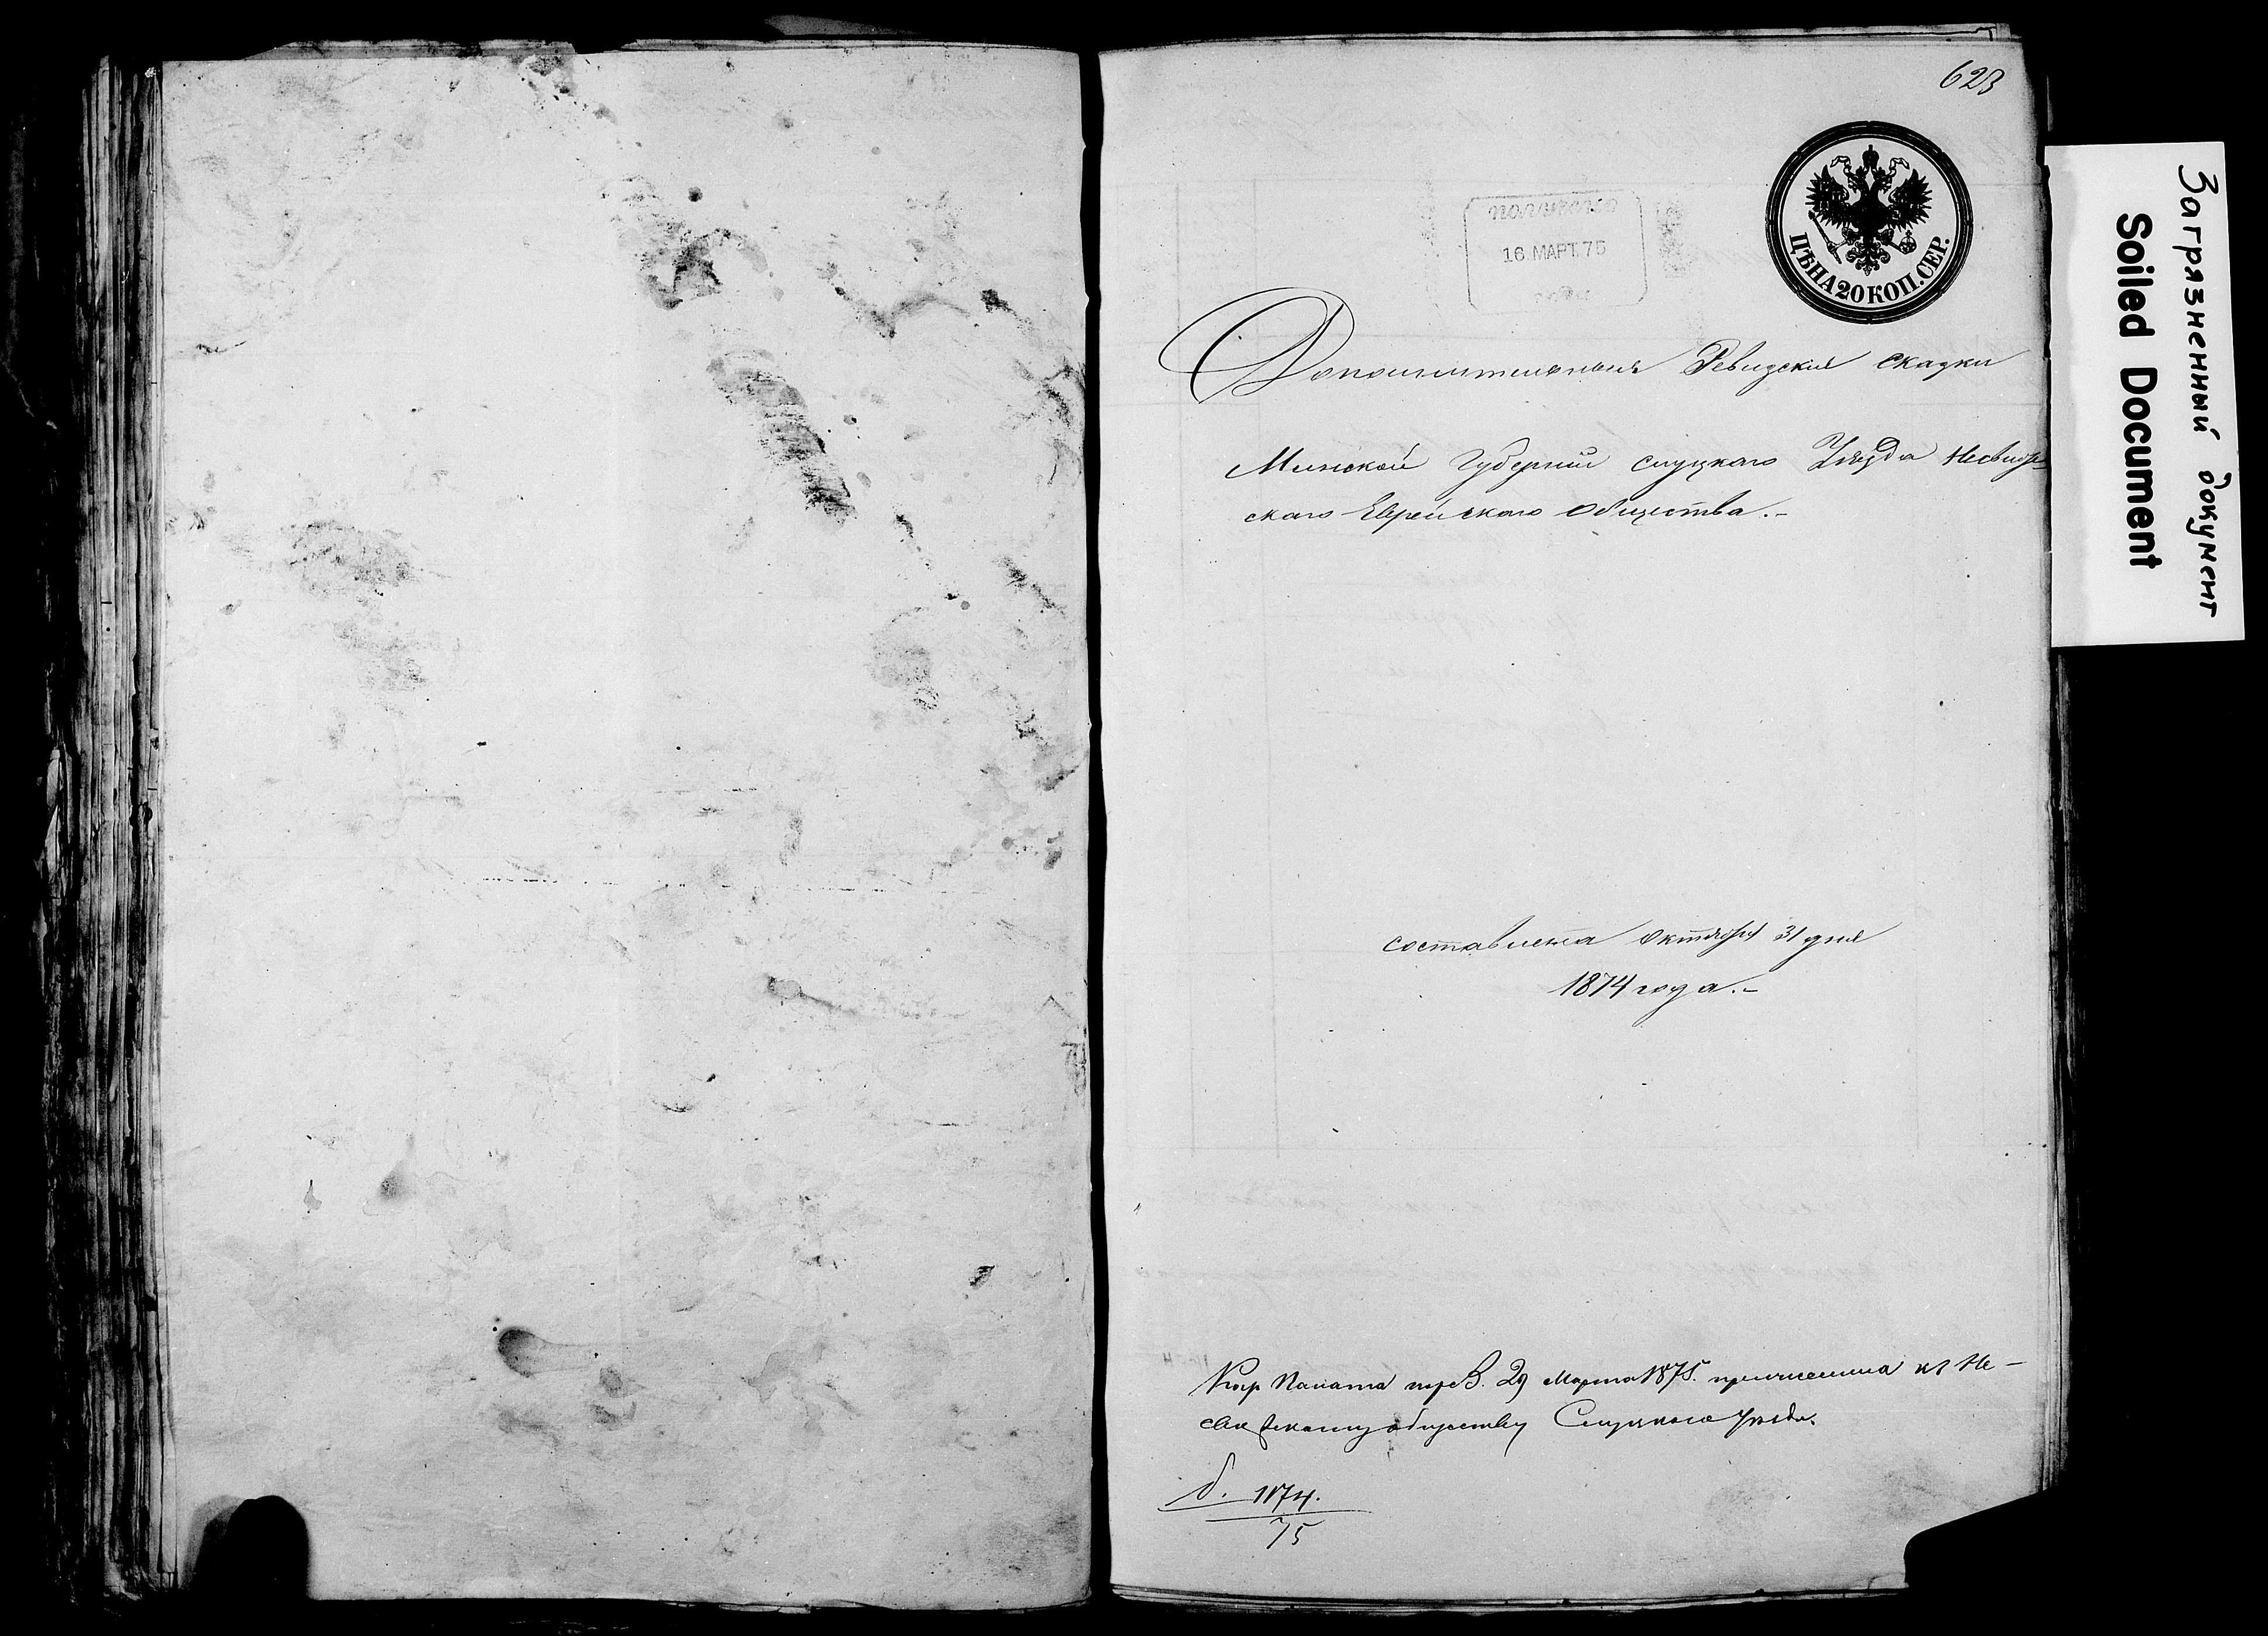 623
ЦѢНА 20 КОП. СЕР.
получено
16. МАРТ. 75
Дополнительныя Ревизскія сказки
Минской Губерніи слуцкаго Уѣзда Несвиж
скаго Еврейскаго общества.-
составлена октября 31 дня
1874 года.-
Палата 29 Марта 1875. причислила къ Не-
свижскому обществу Слуцкаго Уѣзда.
1874.
75
Загрязненный документ
Soiled Document